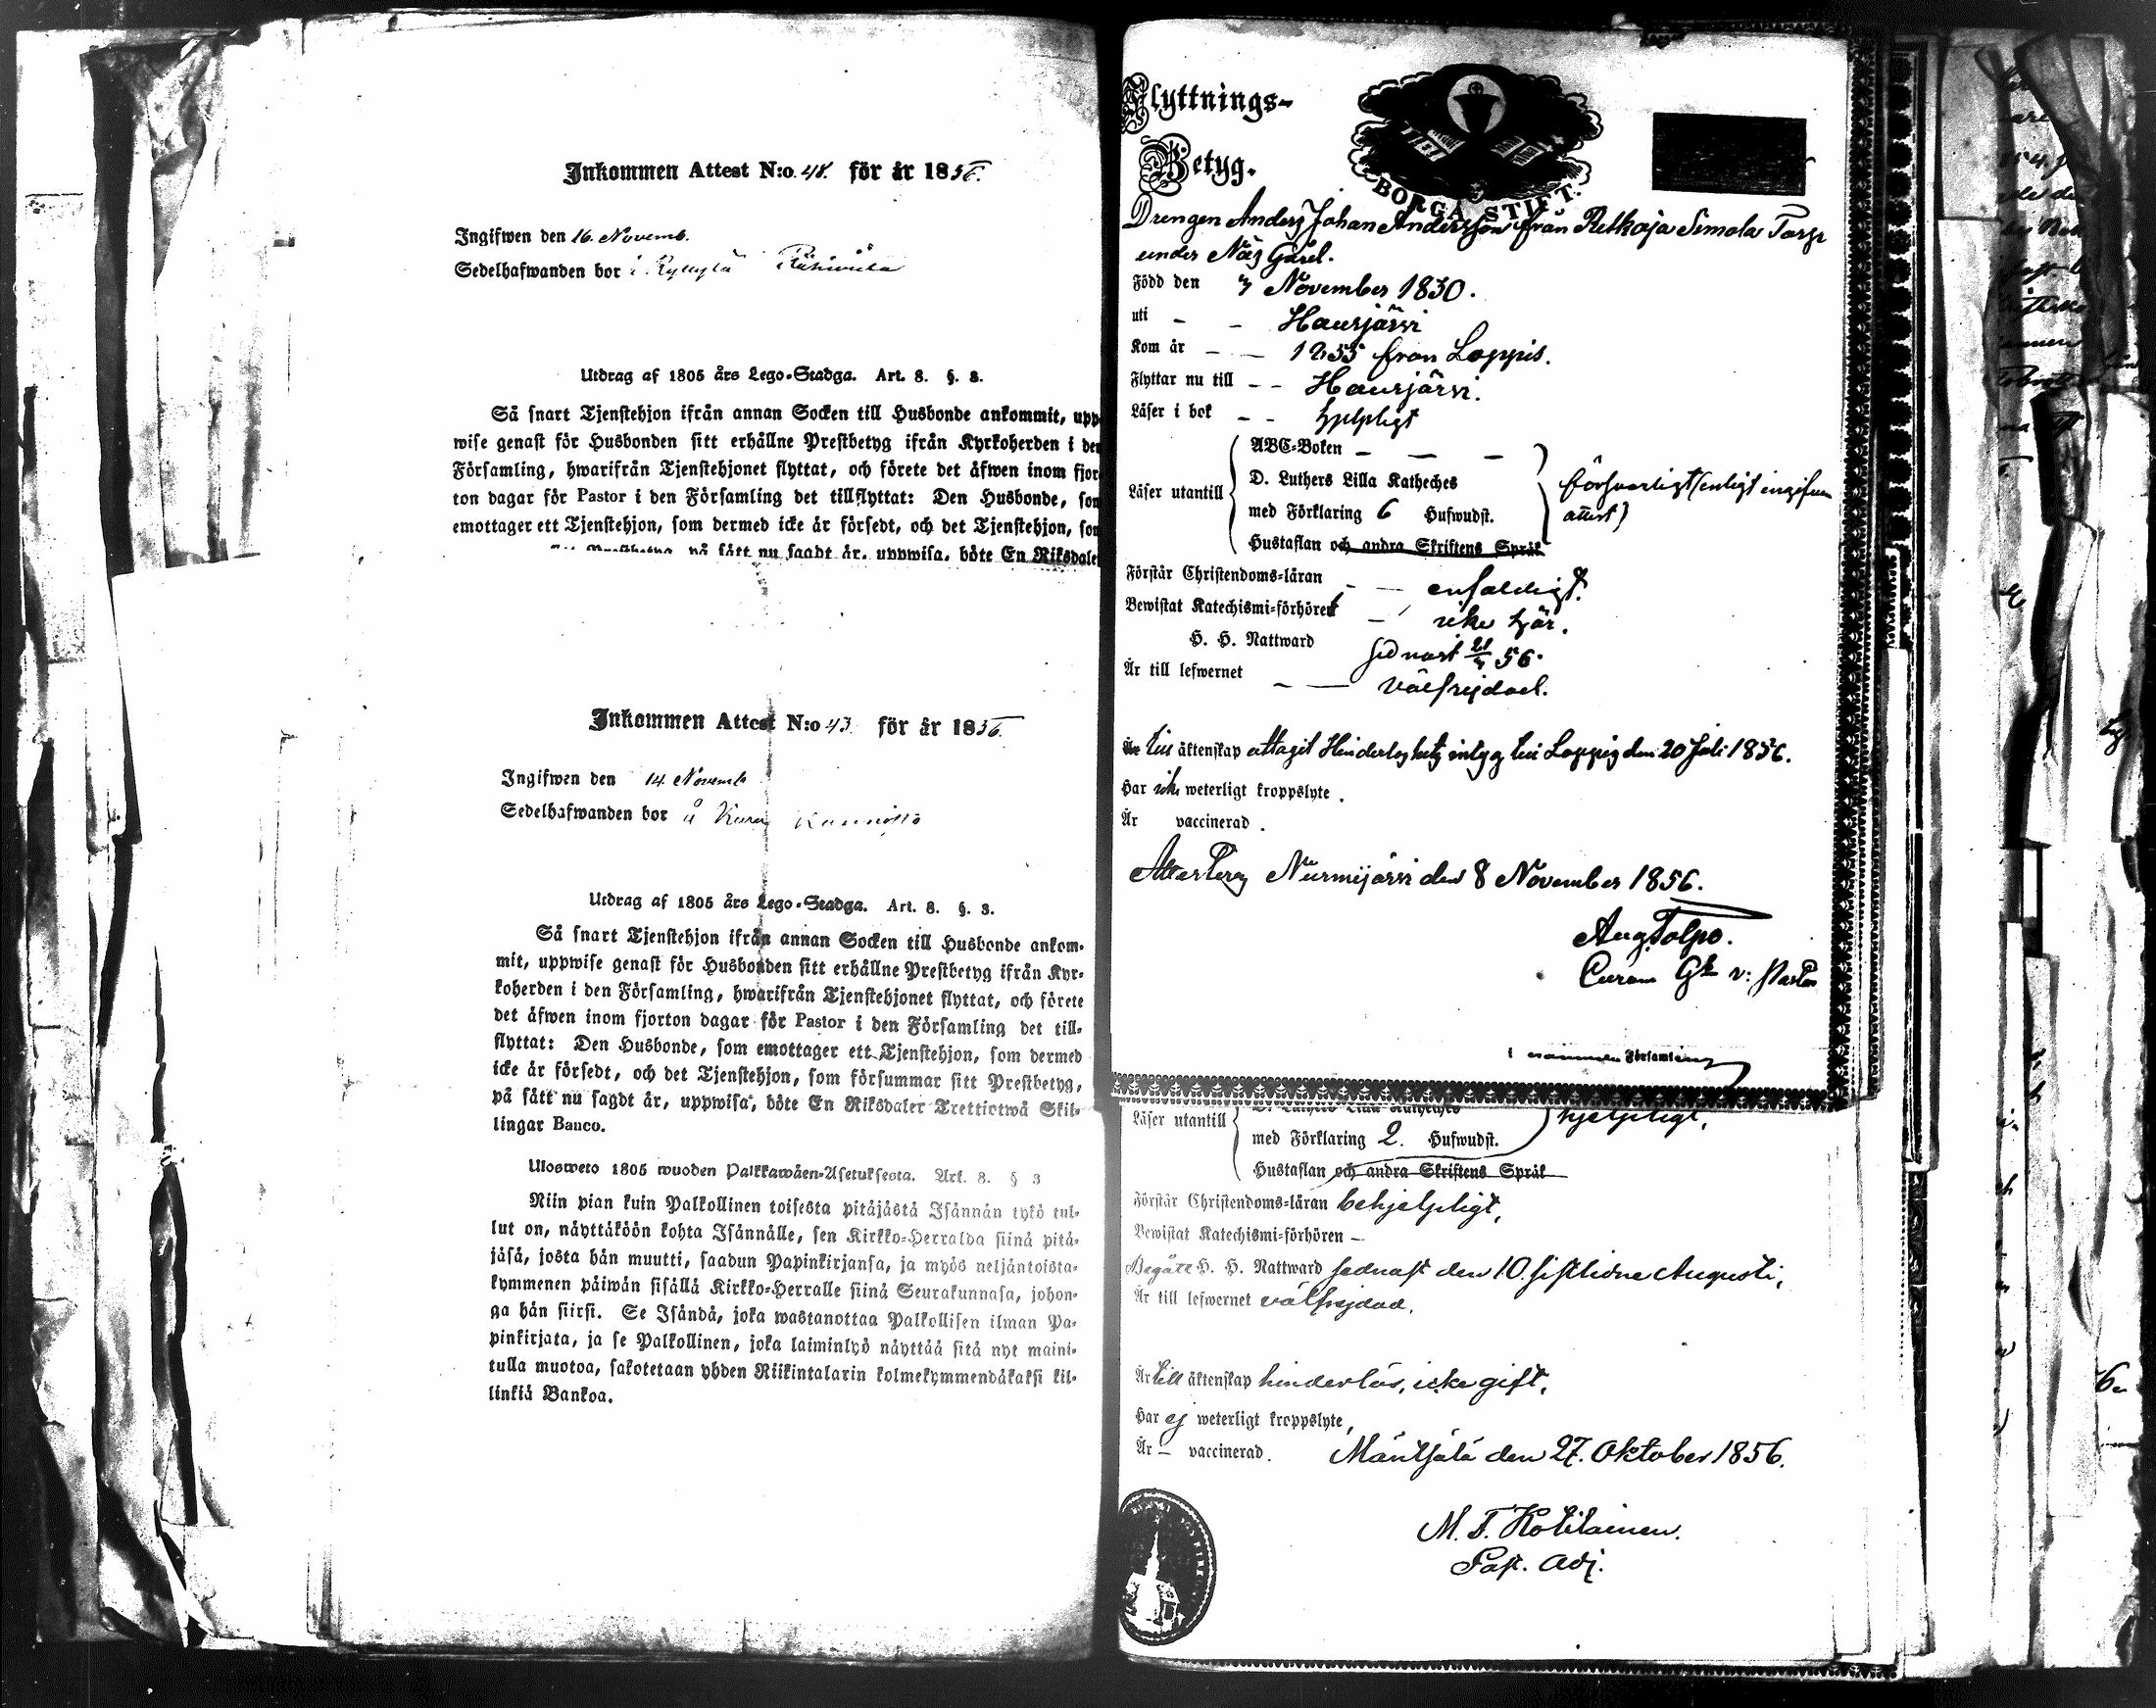 Inkommen Attest N:o 48. för år 1856.
Ingifwen den 16. Novemb.
Sedelhafwanden bor i
Utdrag af 1805 års Lego-Stadga. Art. 8. §. 3.
Så snart Tjenstehjon ifrån annan Socken till Husbonde ankommit, upp
wise genast för Husbonden sitt erhållne Prestbetyg ifrån Kyrkoherden i den
Församling, hwarifrån Tjenstehjonet flyttat, och förete det äfwen inom fjor
ton dagar för Pastor i den Församling det tillflyttat: Den Husbonde, som
emottager ett Tjenstehjon, som dermed icke är försedt, och det Tjenstehjon, som
på sätt nu sagdt är, uppwisa, böte En Riksdaler
Inkommen Attest N:o 43 för år 1856.
Ingifwen den 14 Novemb
Sedelhafwanden bor å
Utdrag af 1805 års Lego-Stadga. Art. 8. §. 3.
Så snart Tjenstehjon ifrån annan Socken till Husbonde ankom-
mit, uppwise genast för Husbonden sitt erhållne Prestbetyg ifrån Kyr-
koherden i den Församling, hwarifrån Tjenstehjonet flyttat, och förete
det äfwen inom fjorton dagar för Pastor i den Församling det till-
flyttat: Den Husbonde, som emottager ett Tjenstehjon, som dermed
icke är försedt, och det Tjenstehjon, som försummar sitt Prestbetyg,
på sätt nu sagdt är, uppwisa, böte En Riksdaler Trettiotwå Skil-
lingar Banco.
Ulosweto 1805 wuoden Palkkawäen-Asetuksesta. Art. 8. § 3
Niin pian kuin Palkollinen toisesta pitäjästä Isännän tykö tul-
lut on, näyttäköön kohta Isännälle, sen Kirkko-Herralda siinä pitä-
jäsä, josta hän muutti, saadun Papinkirjansa, ja myös neljäntoista-
kymmenen päiwän sisällä Kirkko-Herralle siinä Seurakunnasa, johon-
ga hän siirsi. Se Isändä, joka wastanottaa Palkollisen ilman Pa-
pinkirjata, ja se Palkollinen, joka laiminlyö näyttää sitä nyt maini-
tulla muotoa, sakotetaan yhden Riikintalarin kolmekymmendäkaksi kil-
linkiä Bankoa.
Flyttnings-
Betyg.
BORGÅ STIFT.
Drengen Anders Johan Andersson från Retkoja Simola Torp
under Näs Gård.
Född den 7 November 1830.
uti - - Hausjärvi
Kom år - - 1855 från Loppis.
Flyttar nu till - - Hausjärvi.
Läser i bok - - hjelpligt
Läser utantill
ABC-Boken - - -
D. Luthers Lilla Katheches
med Förklaring 6 Hufwudst.
Hustaflan och andra Skriftens Språk
försvarligt (enligt ingifven
attest)
Förstår Christendoms-läran - - enfaldigt.
Bewistat Katechismi-förhöret - icke här.
H. H. Nattward sednast 56.
Är till lefwernet - - välfrejdad.
till äktenskap attagit Hinderlöshets intyg till Loppis den 20 Juli 1856.
Har icke weterligt kroppslyte.
Är vaccinerad.
Nurmijärvi den 8 November 1856.
Aug Tolpo.
v: Pastor
i Församling
Läser utantill
D. Luthers Lilla Katheches
med Förklaring 2. Hufwudst.
Hustaflan och andra Skriftens Språk
hjelpligt,
Förstår Christendoms-läran behjelpligt,
Bewistat Katechismi-förhören -
Begått H. H. Nattward sednast den 10. sistlidne Augusti,
Är till lefwernet välfrejdad,
Är till äktenskap hinderlös, icke gift,
Har ej weterligt kroppslyte,
Är - vaccinerad. Mäntsälä den 27. Oktober 1856.
M. F. Kotilainen.
Past. Adj.